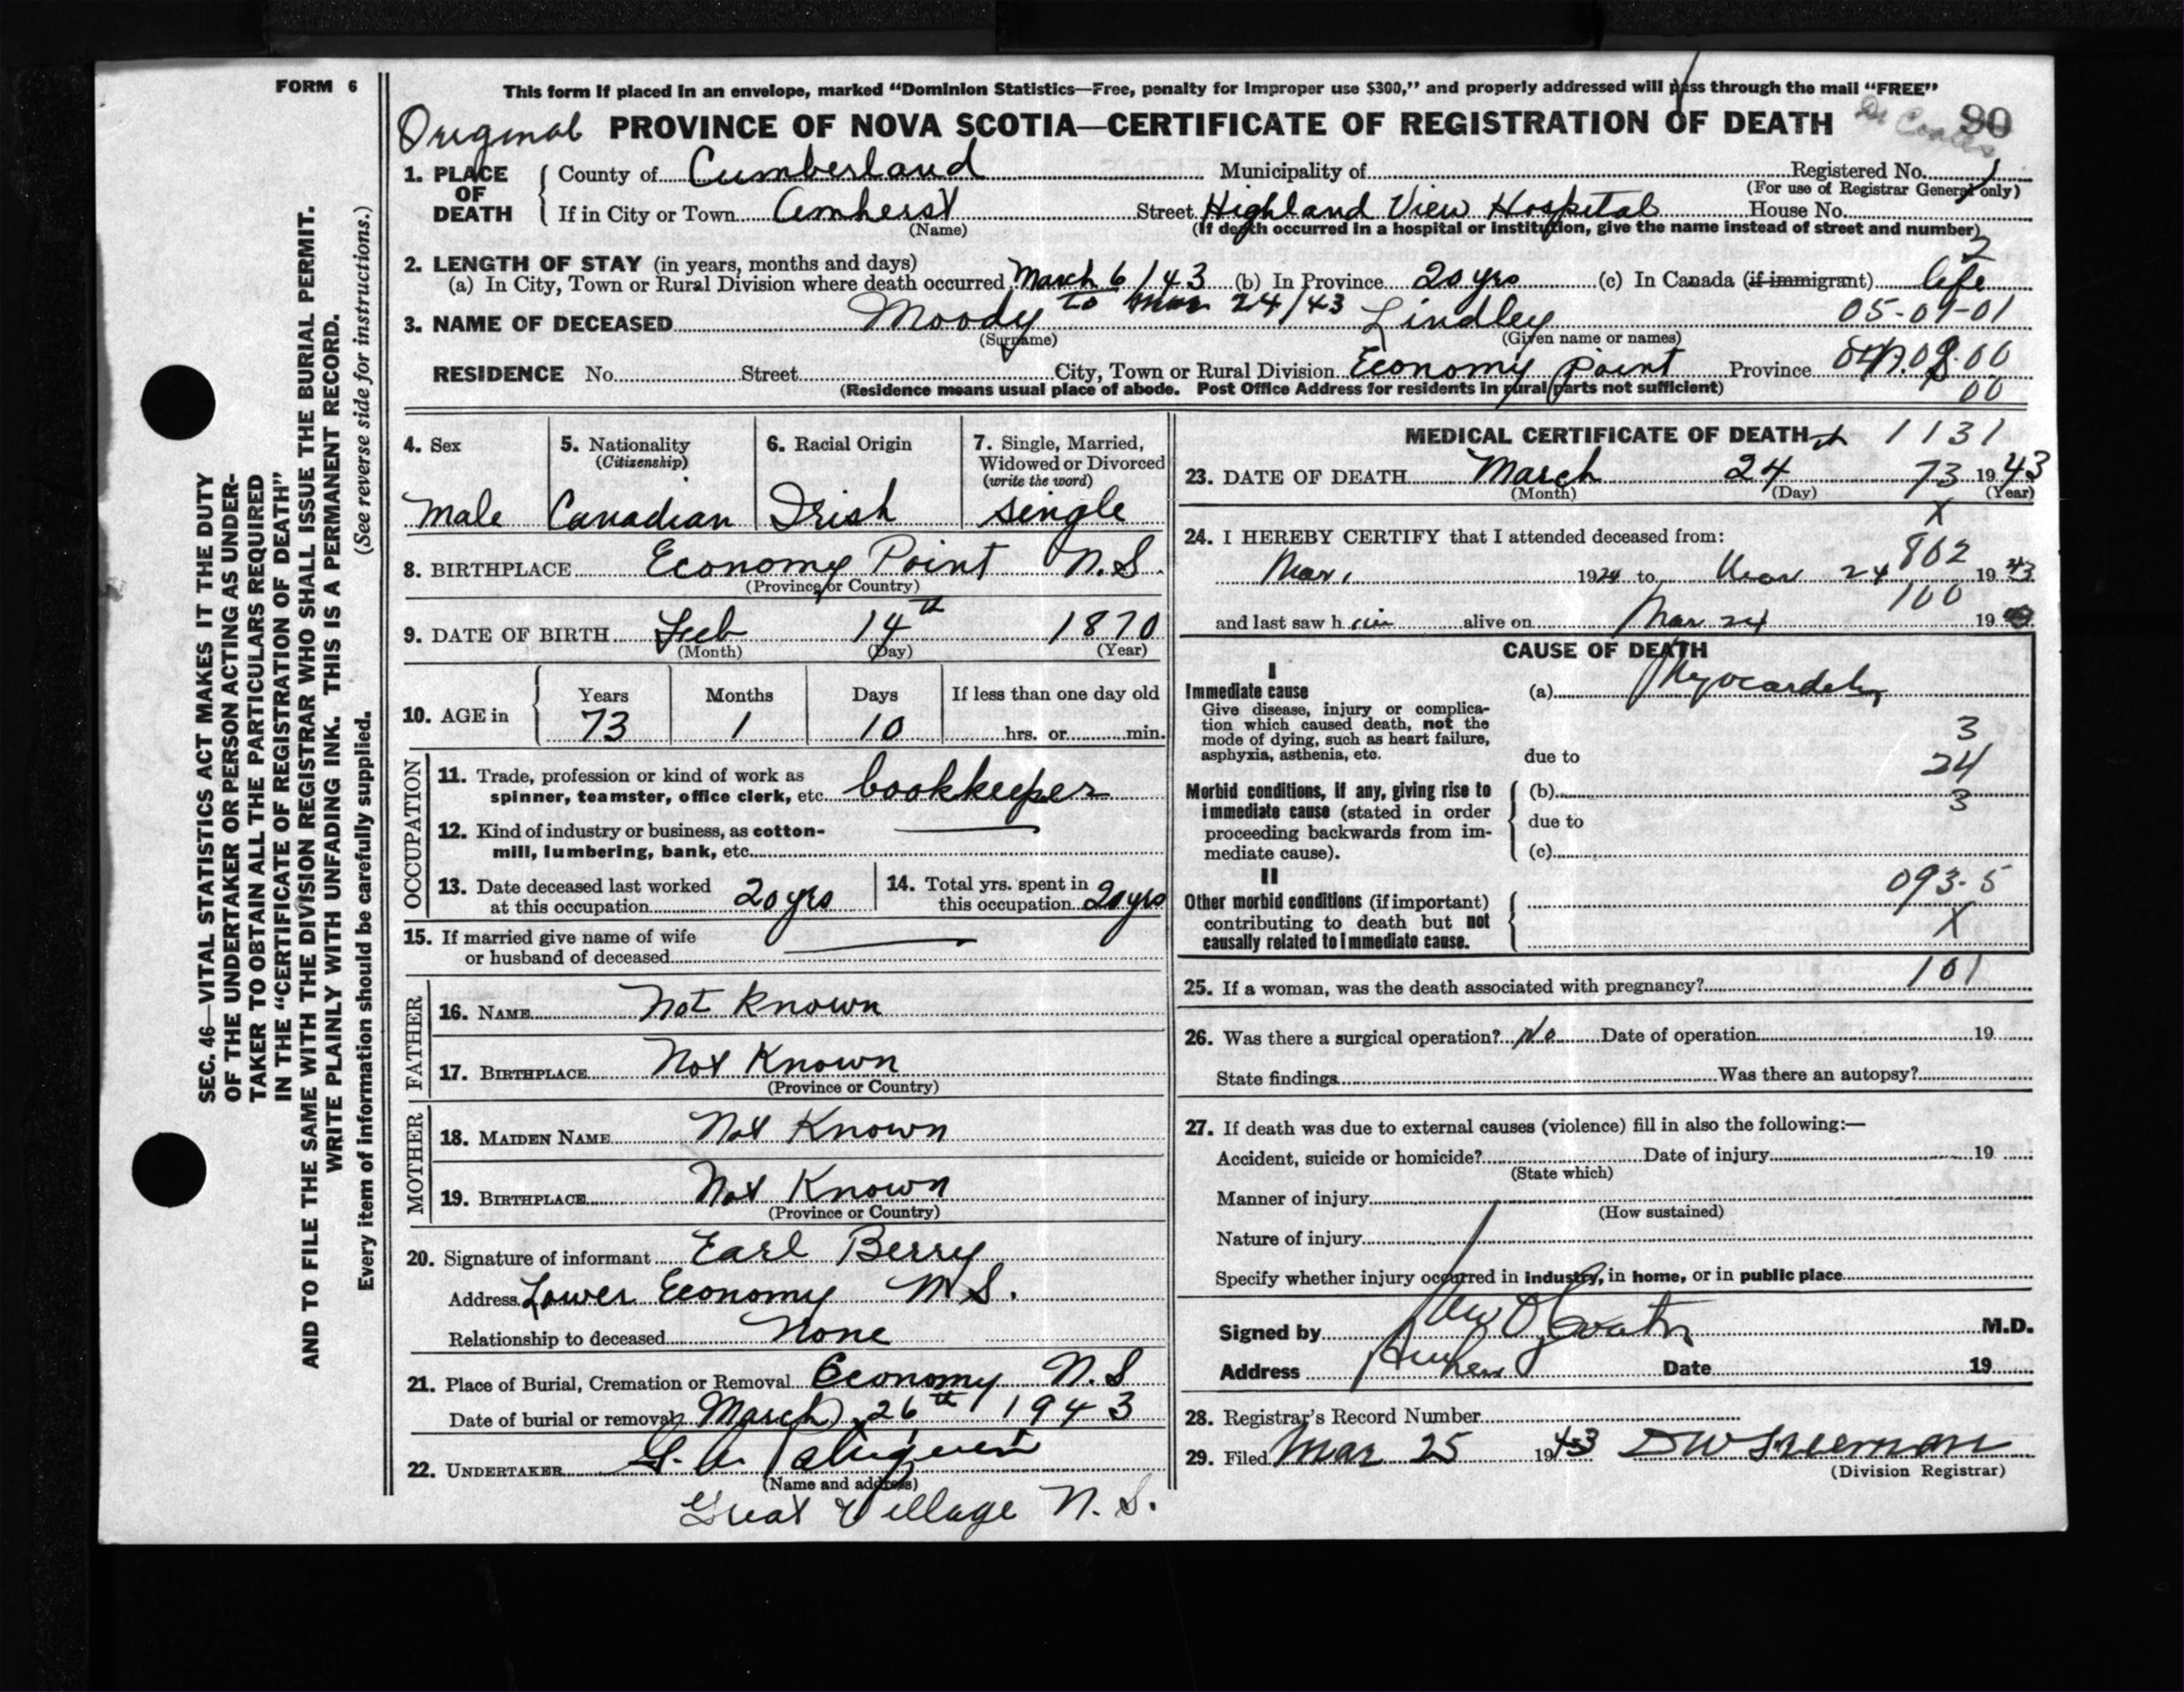 FORM 6
This form if placed in an envelope, marked "Dominion Statistics—Free, penalty for improper use $300," and properly addressed will pass through the mail "FREE"
Original PROVINCE OF NOVA SCOTIA—CERTIFICATE OF REGISTRATION OF DEATH 90
Dr Coates
SEC. 46—VITAL STATISTICS ACT MAKES IT THE DUTY
OF THE UNDERTAKER OR PERSON ACTING AS UNDER-
TAKER TO OBTAIN ALL THE PARTICULARS REQUIRED
IN THE "CERTIFICATE OF REGISTRATION OF DEATH"
AND TO FILE THE SAME WITH THE DIVISION REGISTRAR WHO SHALL ISSUE THE BURIAL PERMIT.
WRITE PLAINLY WITH UNFADING INK. THIS IS A PERMANENT RECORD.
Every item of information should be carefully supplied. (See reverse side for instructions.)
1. PLACE OF DEATH County of Cumberland Municipality of Registered No. 1
(For use of Registrar General only)
If in City or Town Amherst Street Highland View Hospital House No.
(Name) (If death occurred in a hospital or institution, give the name instead of street and number)
2
2. LENGTH OF STAY (in years, months and days)
(a) In City, Town or Rural Division where death occurred March 6/43 (b) In Province 20 yrs (c) In Canada (if immigrant) life
to Mar 24/43
3. NAME OF DECEASED Moody Lindley 05-09-01
(Surname) (Given name or names)
RESIDENCE No. Street City, Town or Rural Division Economy Point Province N.S.
(Residence means usual place of abode. Post Office Address for residents in rural parts not sufficient) 00
4. Sex 5. Nationality 6. Racial Origin 7. Single, Married,
(Citizenship) Widowed or Divorced
(write the word)
Male Canadian Irish single
8. BIRTHPLACE Economy Point N.S.
(Province or Country)
9. DATE OF BIRTH Feb 14th 1870
(Month) (Day) (Year)
10. AGE in Years Months Days If less than one day old
73 1 10 hrs. or min.
OCCUPATION
11. Trade, profession or kind of work as
spinner, teamster, office clerk, etc. bookkeeper
12. Kind of industry or business, as cotton-
mill, lumbering, bank, etc.
13. Date deceased last worked
at this occupation 20 yrs
14. Total yrs. spent in
this occupation 20 yrs
15. If married give name of wife
or husband of deceased
FATHER
16. NAME Not Known
17. BIRTHPLACE Not Known
(Province or Country)
MOTHER
18. MAIDEN NAME Not Known
19. BIRTHPLACE Not Known
(Province or Country)
20. Signature of informant Earl Berry
Address Lower Economy N.S.
Relationship to deceased None
21. Place of Burial, Cremation or Removal Economy N.S
Date of burial or removal March 26th 1943
22. UNDERTAKER
(Name and address)
Great Village N.S.
MEDICAL CERTIFICATE OF DEATH 1131
23. DATE OF DEATH March 24 73 1943
(Month) (Day) (Year)
X
24. I HEREBY CERTIFY that I attended deceased from:
802
Mar. 19 to Mar 24 1943
100
and last saw h im alive on Mar 24 19
CAUSE OF DEATH
I
Immediate cause (a) Myocarditis
Give disease, injury or complica-
tion which caused death, not the
mode of dying, such as heart failure,
asphyxia, asthenia, etc. due to
3
24
3
Morbid conditions, if any, giving rise to (b)
immediate cause (stated in order
proceeding backwards from im- due to
mediate cause). (c)
II
093-5
Other morbid conditions (if important)
contributing to death but not
causally related to immediate cause.
X
101
25. If a woman, was the death associated with pregnancy?
26. Was there a surgical operation? No Date of operation 19
State findings Was there an autopsy?
27. If death was due to external causes (violence) fill in also the following:—
Accident, suicide or homicide? Date of injury 19
(State which)
Manner of injury
(How sustained)
Nature of injury
Specify whether injury occurred in industry, in home, or in public place
Signed by M.D.
Address Amherst Date 19
28. Registrar's Record Number
29. Filed Mar 25 1943 D W Freeman
(Division Registrar)